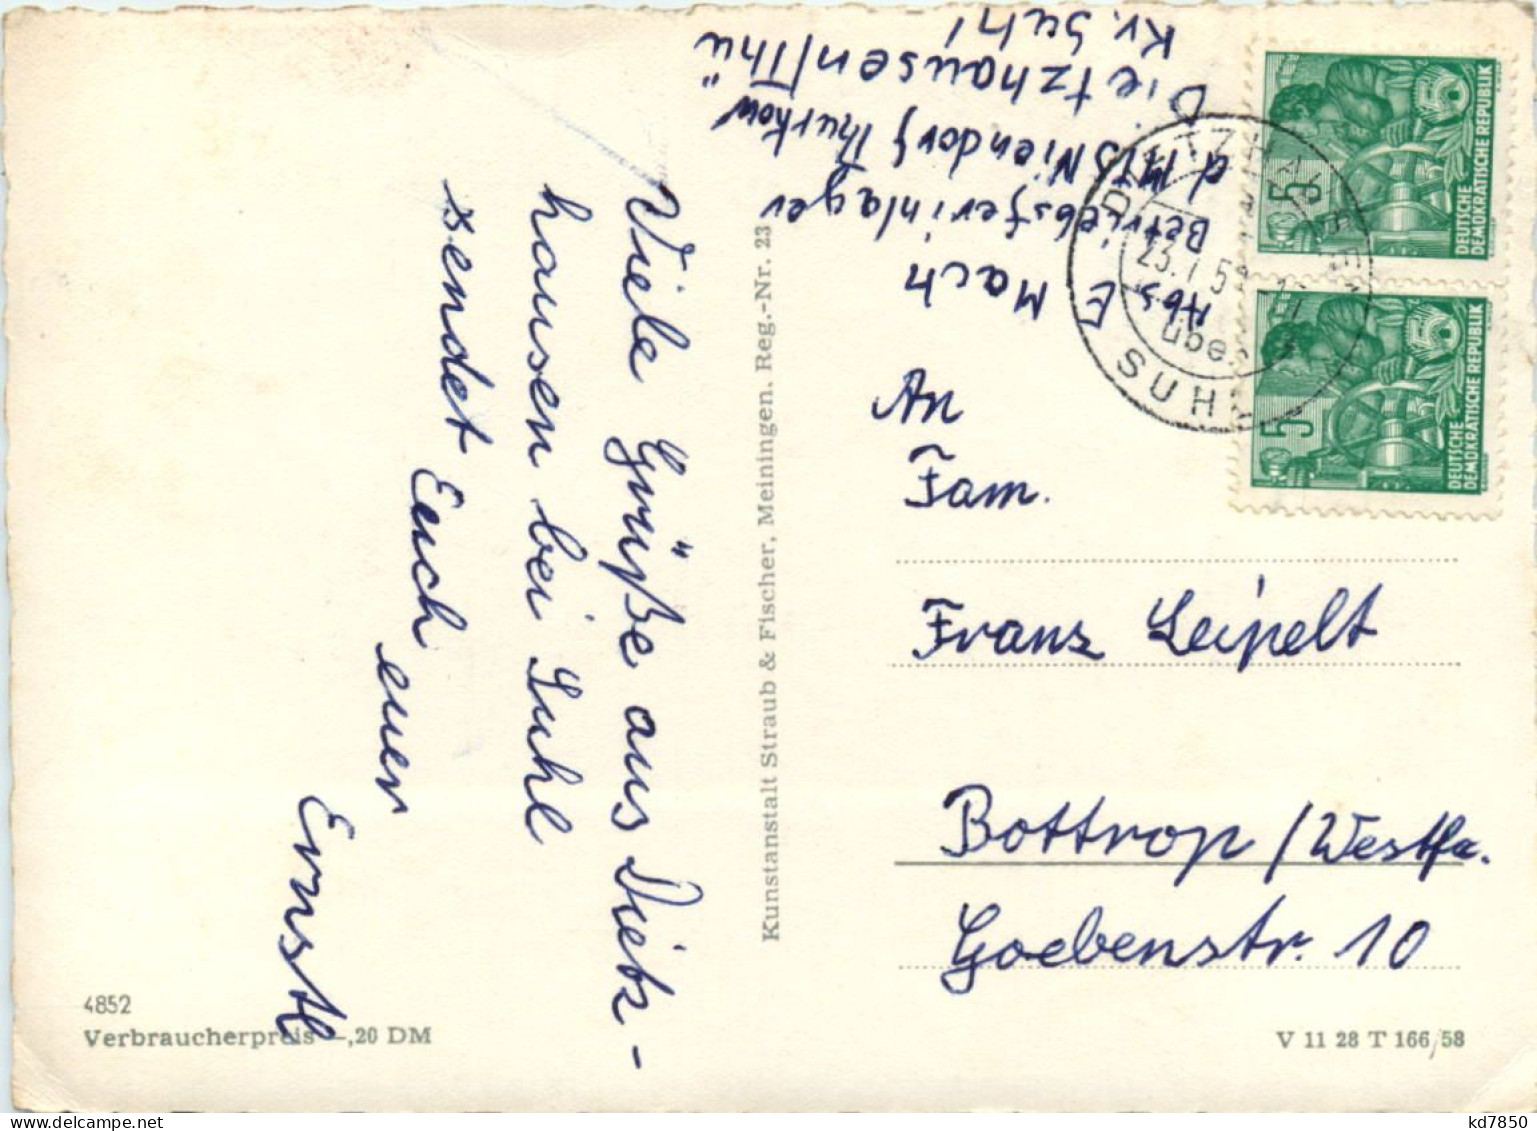 Viele Grüße aus Dietz-
hausen bei Suhl
sendet Euch euer
Ernstl
Kunstanstalt Straub & Fischer, Meiningen. Reg.-Nr. 23
4852
Verbraucherpreis –,20 DM
Abs. Mach
Betriebsferinlager
d. MTS Niendorf Thurkow
Dietzhausen/Thü
Kr. Suhl
An
Fam.
Franz Leipelt
Bottrop /Westfa.
Goebenstr. 10
V 11 28 T 166/58
DIETZHAUSEN
über
SUHL
5
DEUTSCHE
DEMOKRATISCHE REPUBLIK
5
DEUTSCHE
DEMOKRATISCHE REPUBLIK
kd7850